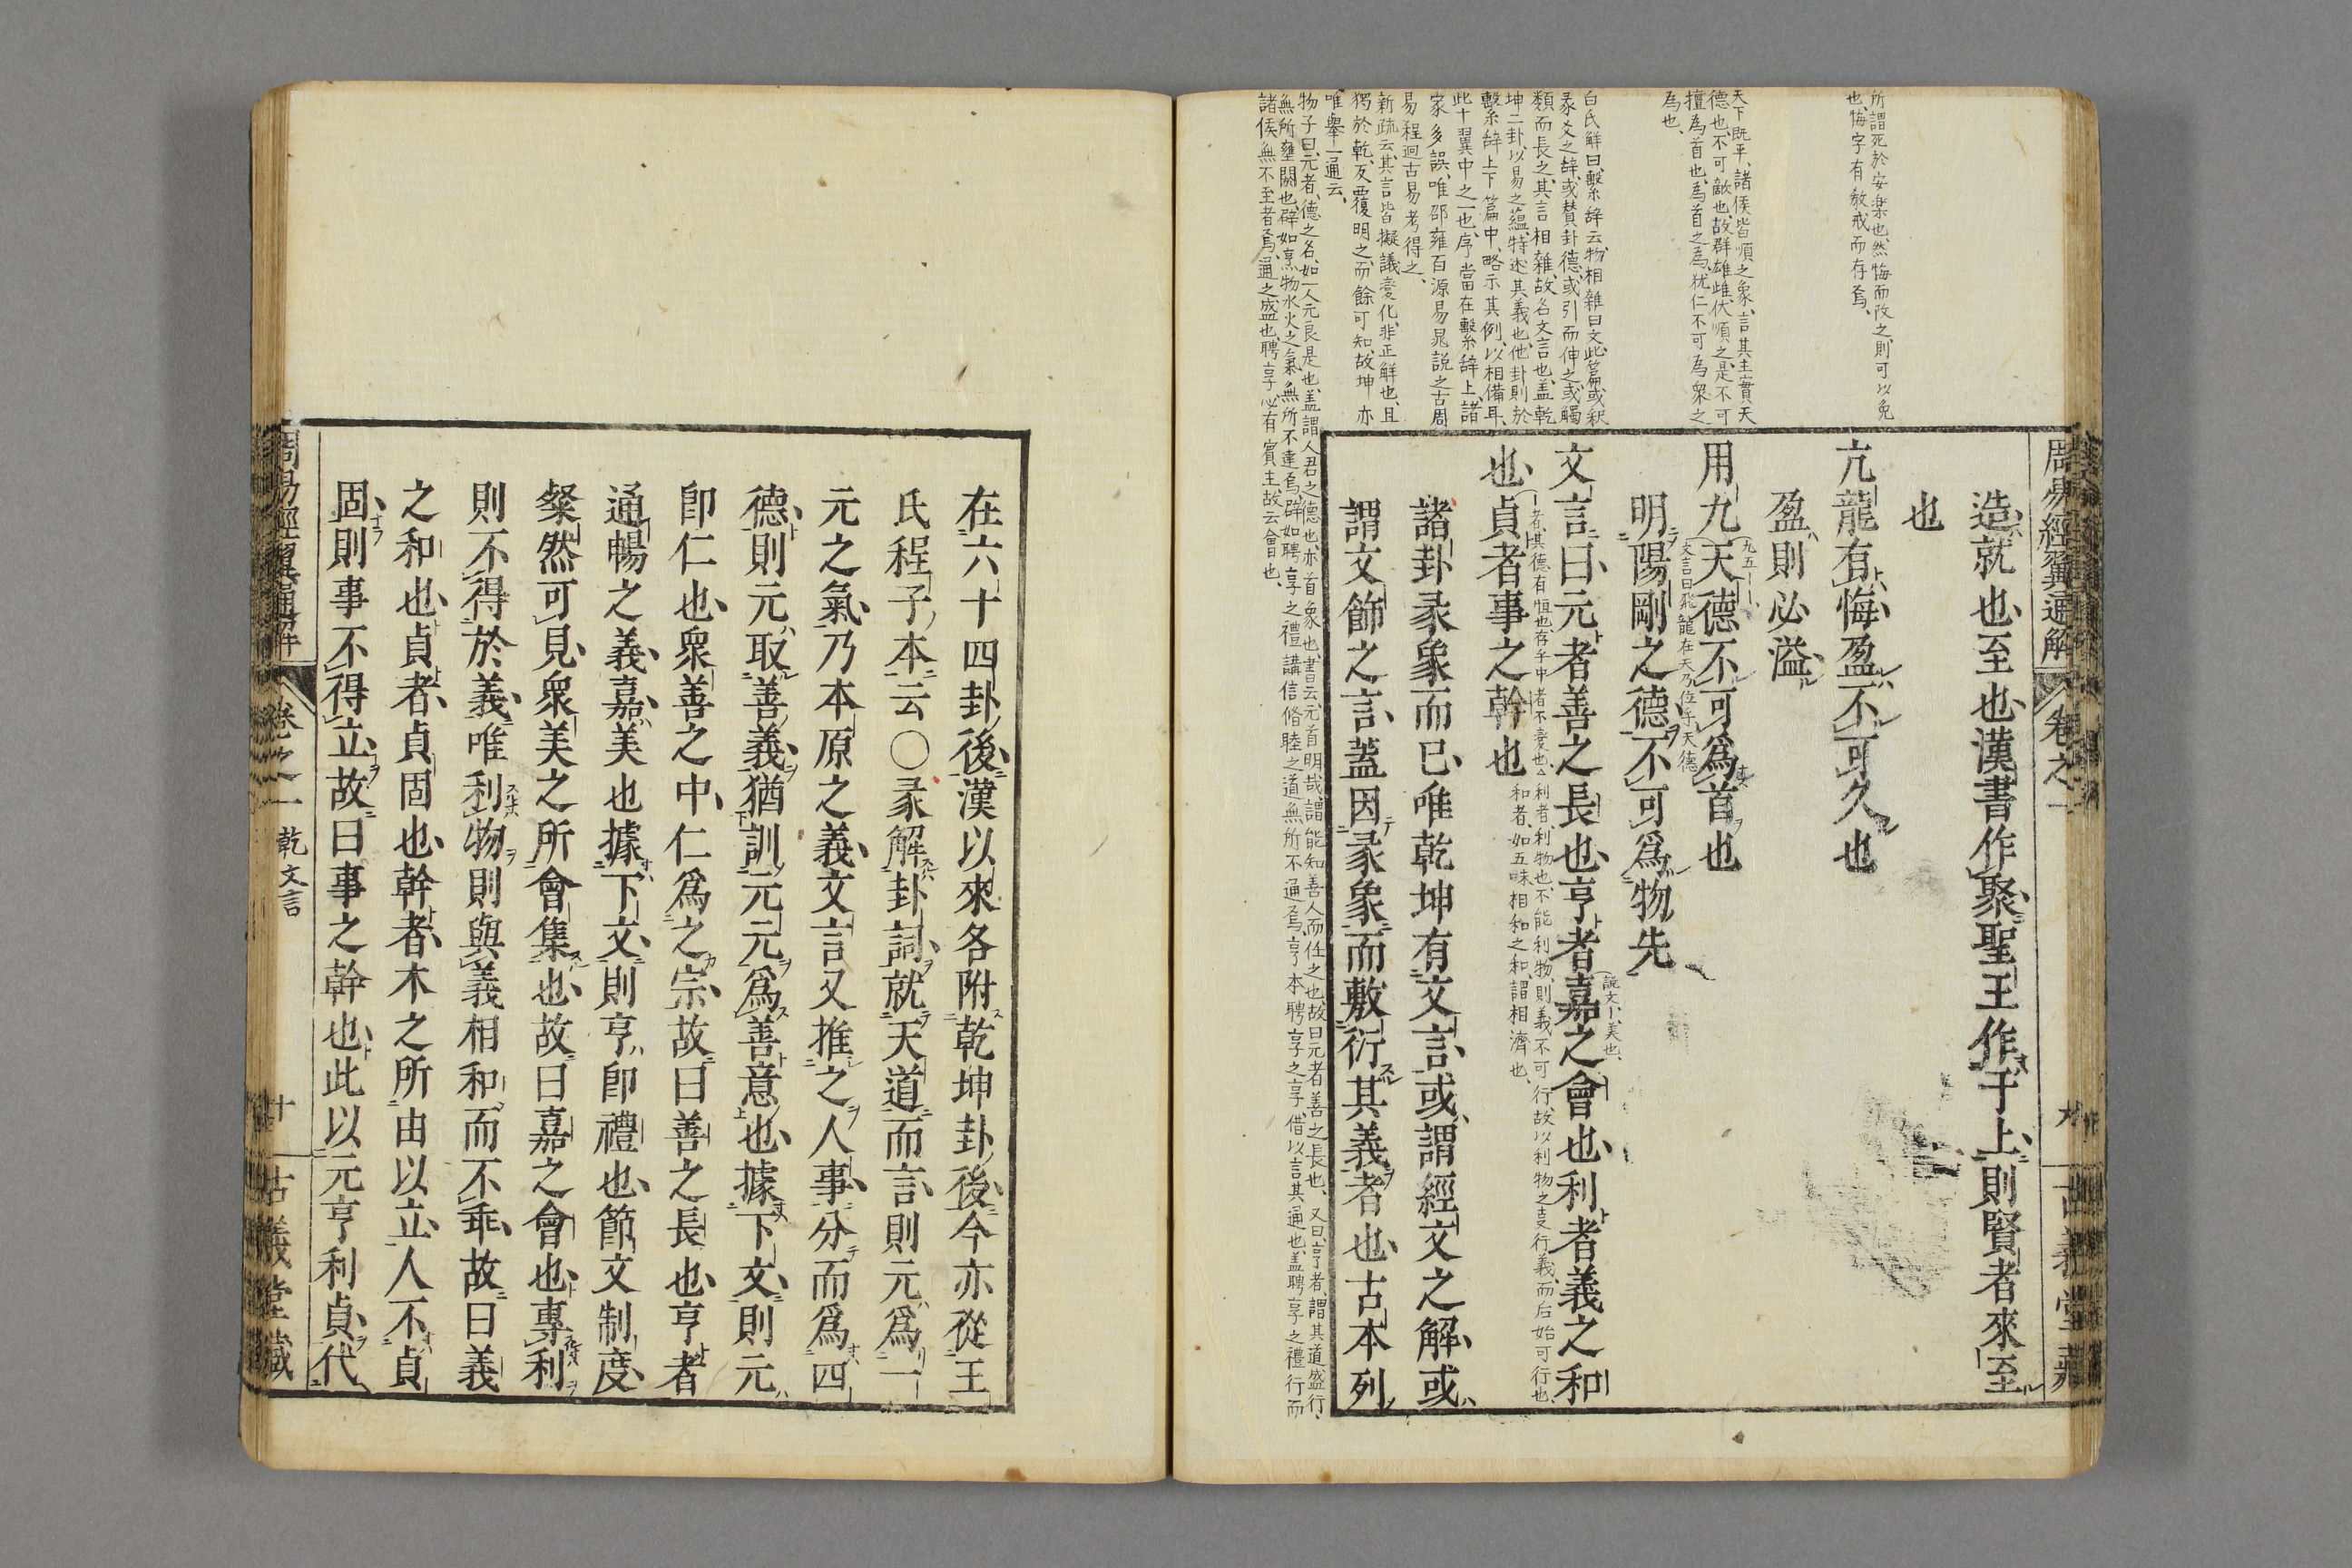 周易經翼通解
卷之一
九
古義堂藏
所謂死於安樂也然悔而改之則可以免
也悔字有教戒而存焉
天下既平諸侯皆順之象言其主實天
德也不可敵也故群雄雌伏順之是不可
擅為首也為首之為犹仁不可為衆之
為也
白氏解曰繫辞云物相雑曰文此篇或釈
彖爻之辞或賛卦德或引而伸之或觸
類而長之其言相雑故名文言也盖乾
坤二卦以易之蘊特述其義也他卦則於
繫辞上下篇中略示其例以相備耳
此十翼中之一也序當在繫辞上諸
家多誤唯邵雍百源易晁説之古周
易程迥古易考得之
新疏云其言皆擬議変化非正解也且
獨於乾反覆明之而餘可知故坤亦
唯舉一通云
造就也至也漢書作聚聖王作于上則賢者來至
也
亢龍有悔盈不可久也
盈則必溢
用九天德不可爲首也
九五
文言曰飛龍在天乃位乎天德
明陽剛之德不可爲物先
文言曰元者善之長也亨者嘉之會也利者義之和
説文卜美也
也貞者事之幹也
者其德有恒也存乎中者不変也△利者利物也不能利物則義不可行故以利物之支行義而后始可行也
和者如五味相和之和謂相濟也
諸卦彖象而已唯乾坤有文言或謂經文之解或
謂文飾之言蓋因彖象而敷衍其義者也古本列
物子曰元者德之名如一人元良是也盖謂人君之德也亦首象也書云元首明哉謂能知善人而任之也故曰元者善之長也又曰亨者謂其道盛行
無所壅閼也辟如烹物水火之氣無所不達焉辟如聘享之禮講信脩睦之道無所不通焉亨本聘享之享借以言其通也盖聘享之禮行而
諸侯無不至者焉通之盛也聘享必有賓主故云會也
在六十四卦後漢以來各附乾坤卦後今亦從王
氏程子本云○彖解卦詞就天道而言則元爲一
元之氣乃本原之義文言又推之人事分而爲四
德則元取善義猶訓元元爲善意也據下文則元
卽仁也衆善之中仁爲之宗故曰善之長也亨者
通暢之義嘉美也據下文則亨卽禮也節文制度
粲然可見衆美之所會集也故曰嘉之會也專利
則不得於義唯利物則與義相和而不乖故曰義
之和也貞者貞固也幹者木之所由以立人不貞
固則事不得立故曰事之幹也此以元亨利貞代
周易經翼通解
卷之一
乾文言
十
古義堂藏